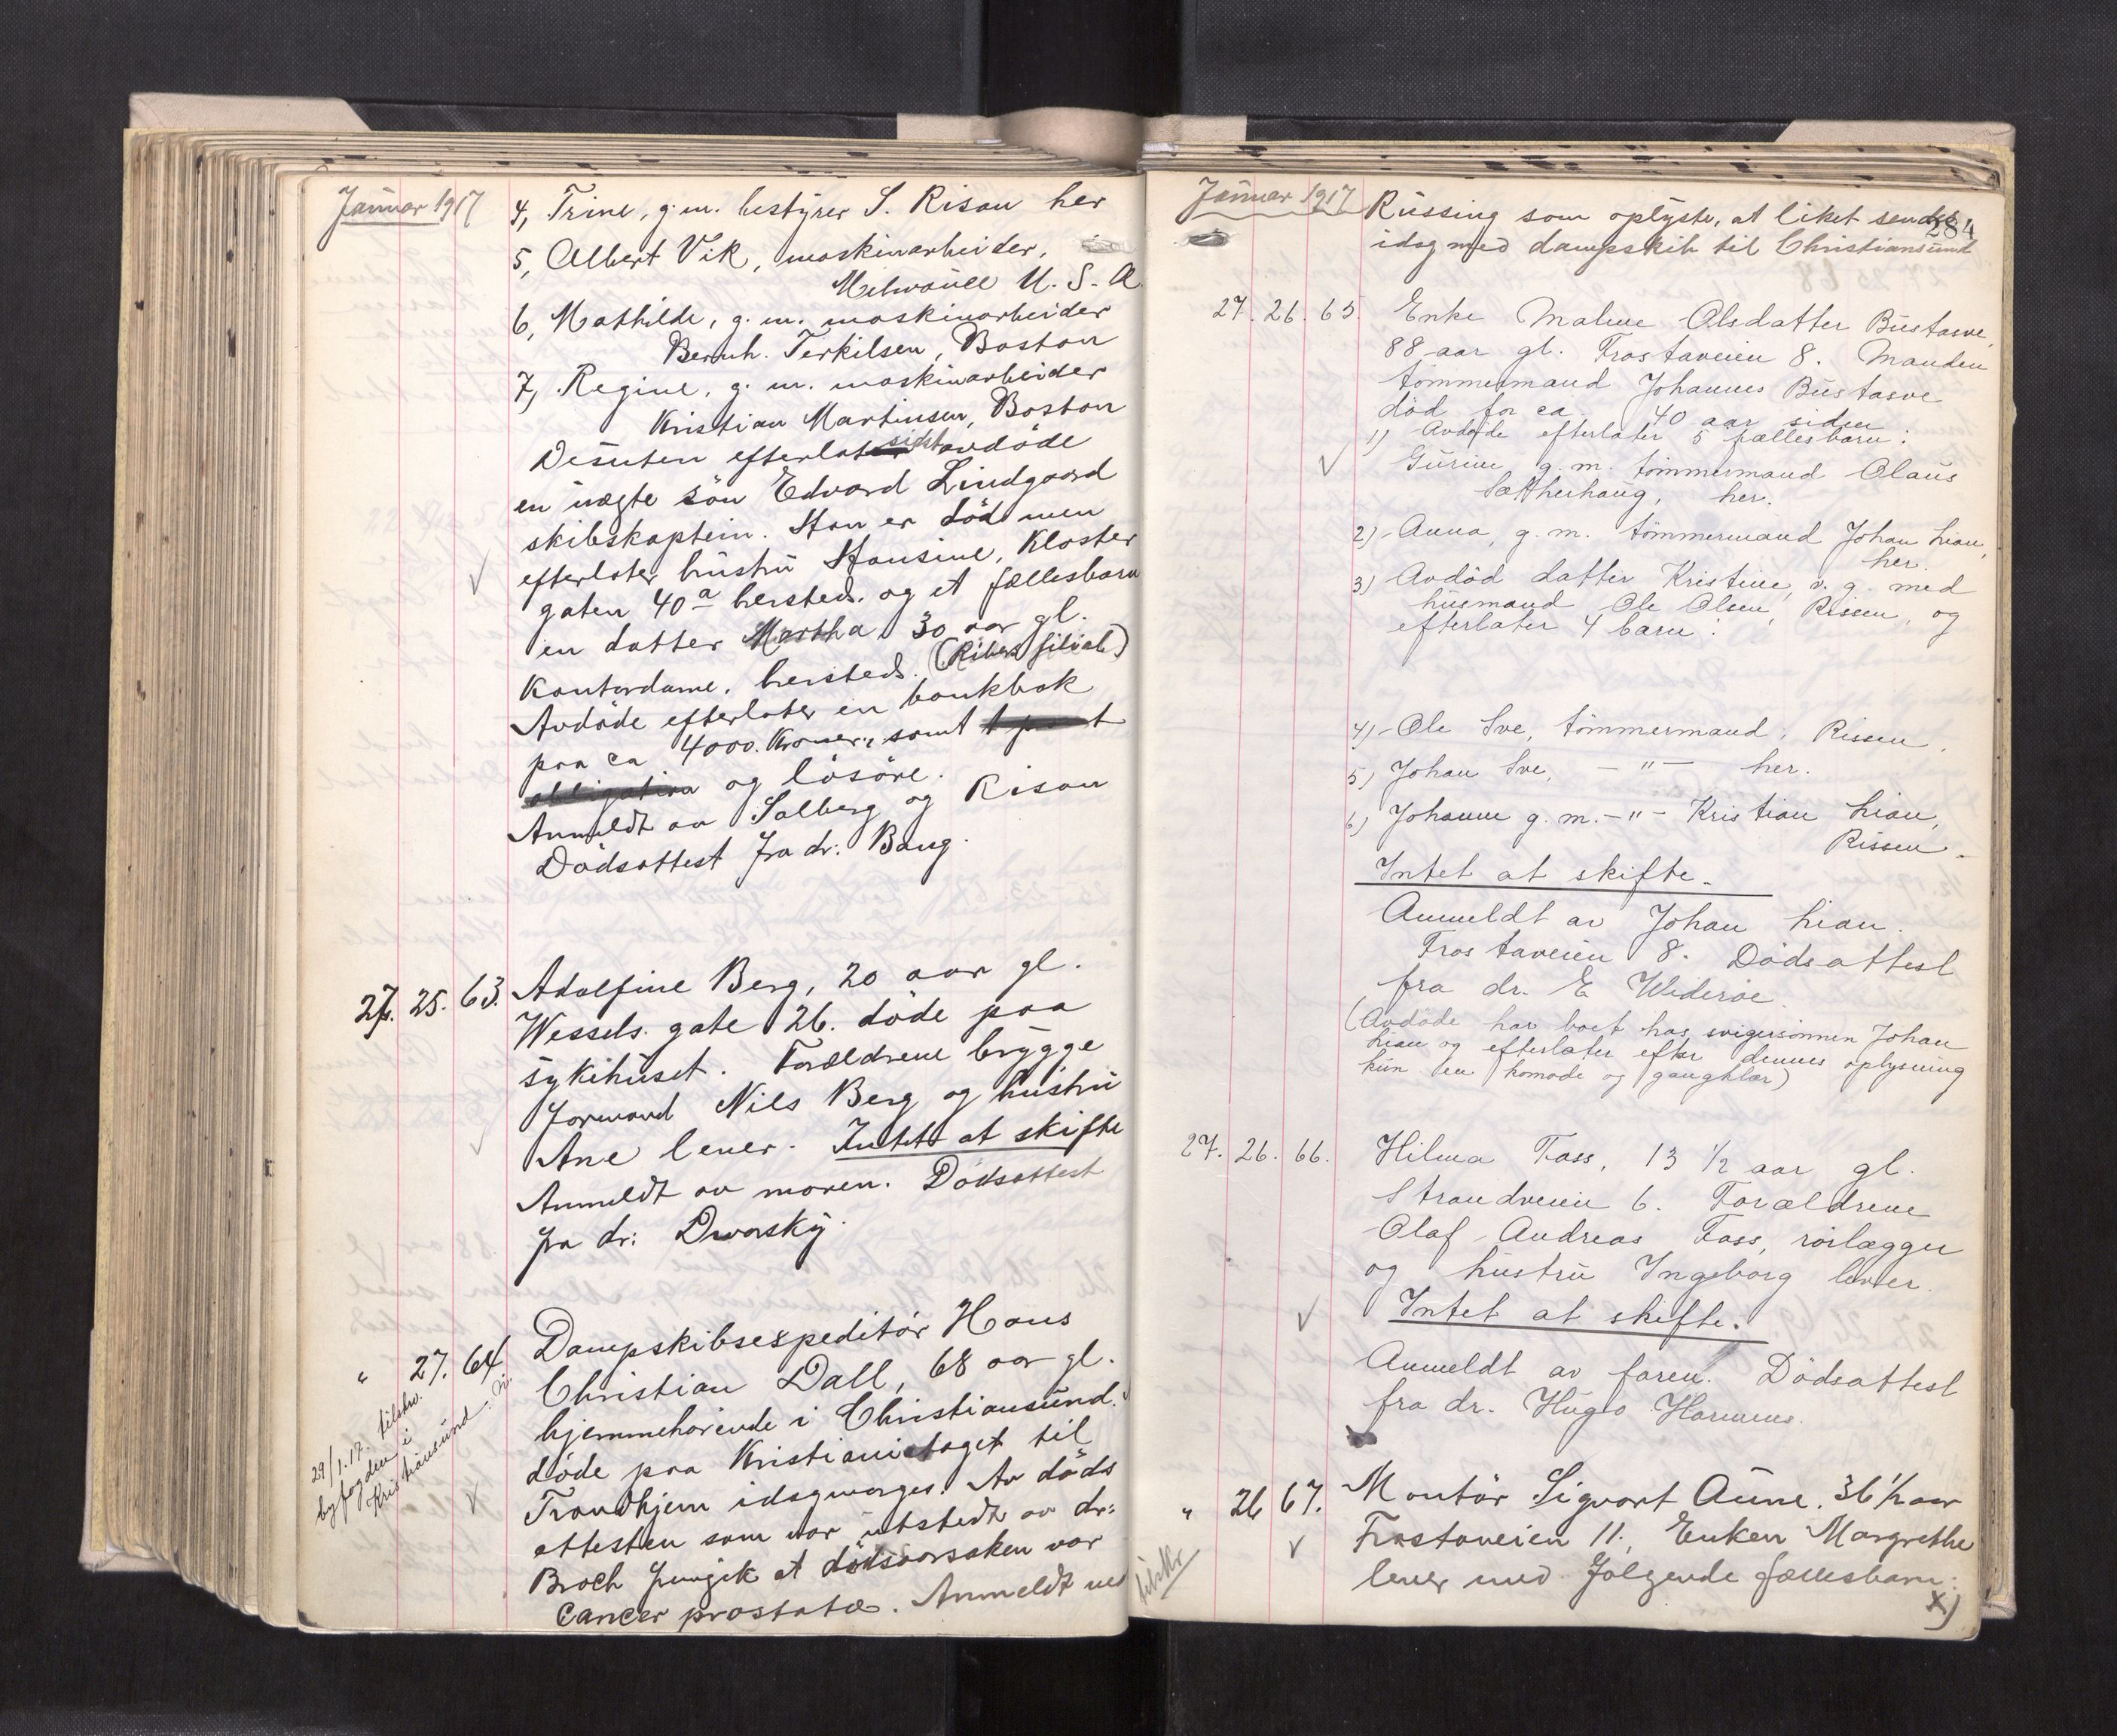 Januar 1917
4, Trine, g. m. bestyrer S. Risan her
5, Albert Vik, maskinarbeider,
U. S. A.
6, Mathilde, g. m. maskinarbeider
Bernh. Terkilsen, Boston
7, Regine, g. m. maskinarbeider
Kristian Martinsen, Boston
Desuten efterlater sidst avdöde
en uægte sön Edvard Lindgaard
skibskaptein. Han er död men
efterlater hustru Hansine, Kloster
gaten 40a hersteds. og et fællesbarn
en datter Martha 30 aar gl.
Kontordame, hersteds. (Kibers filial)
Avdöde efterlater en bankbok
paa ca 4000. Kroner, samt
obligation og lösöre.
Anmeldt av Solberg og Risan
Dödsattest fra dr: Bang.
27. 25. 63. Adolfine Berg, 20 aar gl.
Wessels. gate 26. döde paa
sykehuset. Forældrene brygge
formand Nils Berg og hustru
Ane lever. Intet at skifte
Anmeldt av moren. Dödsattest
fra dr: Dworsky.
" 27. 64 Dampskibsexpeditör Hans
Christian Dall, 68 aar gl.
hjemmehörende i Christiansund.
döde paa Kristianiataget til
Trondhjem idagmorges. Av döds
attesten som var utstedt av dr:
Broch fremgik at dödsaarsaken var
cancer prostatæ. Anmeldt ved
29/1.17. tilskr.
byfogden i
Kristiansund. N.
Januar 1917
284
Russing som oplyste, at liket sendes
idag med dampskib til Christiansund
27. 26. 65. Enke Malene Olsdatter Bustasve,
88 aar gl. Frostaveien 8. Manden
tömmermand Johannes Bustasve
död for ca. 40 aar siden
Avdöde efterlater 5 fællesbarn:
1) Gurine g. m. tömmermand Olaus
Sætherhaug, her.
2) Anna, g. m. tömmermand Johan Lian,
her.
3) Avdöd datter Kristine, v. g. med
husmand Ole Olsen, Rissen, og
efterlater 4 barn:
4) Ole Sve, tömmermand, Rissen,
5) Johan Sve, — " — her.
6) Johanne g. m. — " — Kristian Lian,
Rissen.
Intet at skifte.
Anmeldt av Johan Lian.
Frostaveien 8. Dödsattest
fra dr. E Wideröe.
(Avdöde har boet hos svigersönnen Johan
Lian og efterlater efter dennes oplysning
kun en komode og gangklær)
27. 26. 66. Hilma Foss, 13 1/2 aar gl.
Strandveien 6. Forældrene
Olaf Andreas Foss, rörlægger
og hustru Ingeborg lever.
Intet at skifte.
Anmeldt av faren. Dödsattest
fra dr. Hugo Hammer.
" 26 67. Montör Sigvart Aune. 36 1/2 aar
Frostaveien 11, Enken Margrethe
lever med følgende fællesbarn:
x)
tilskr